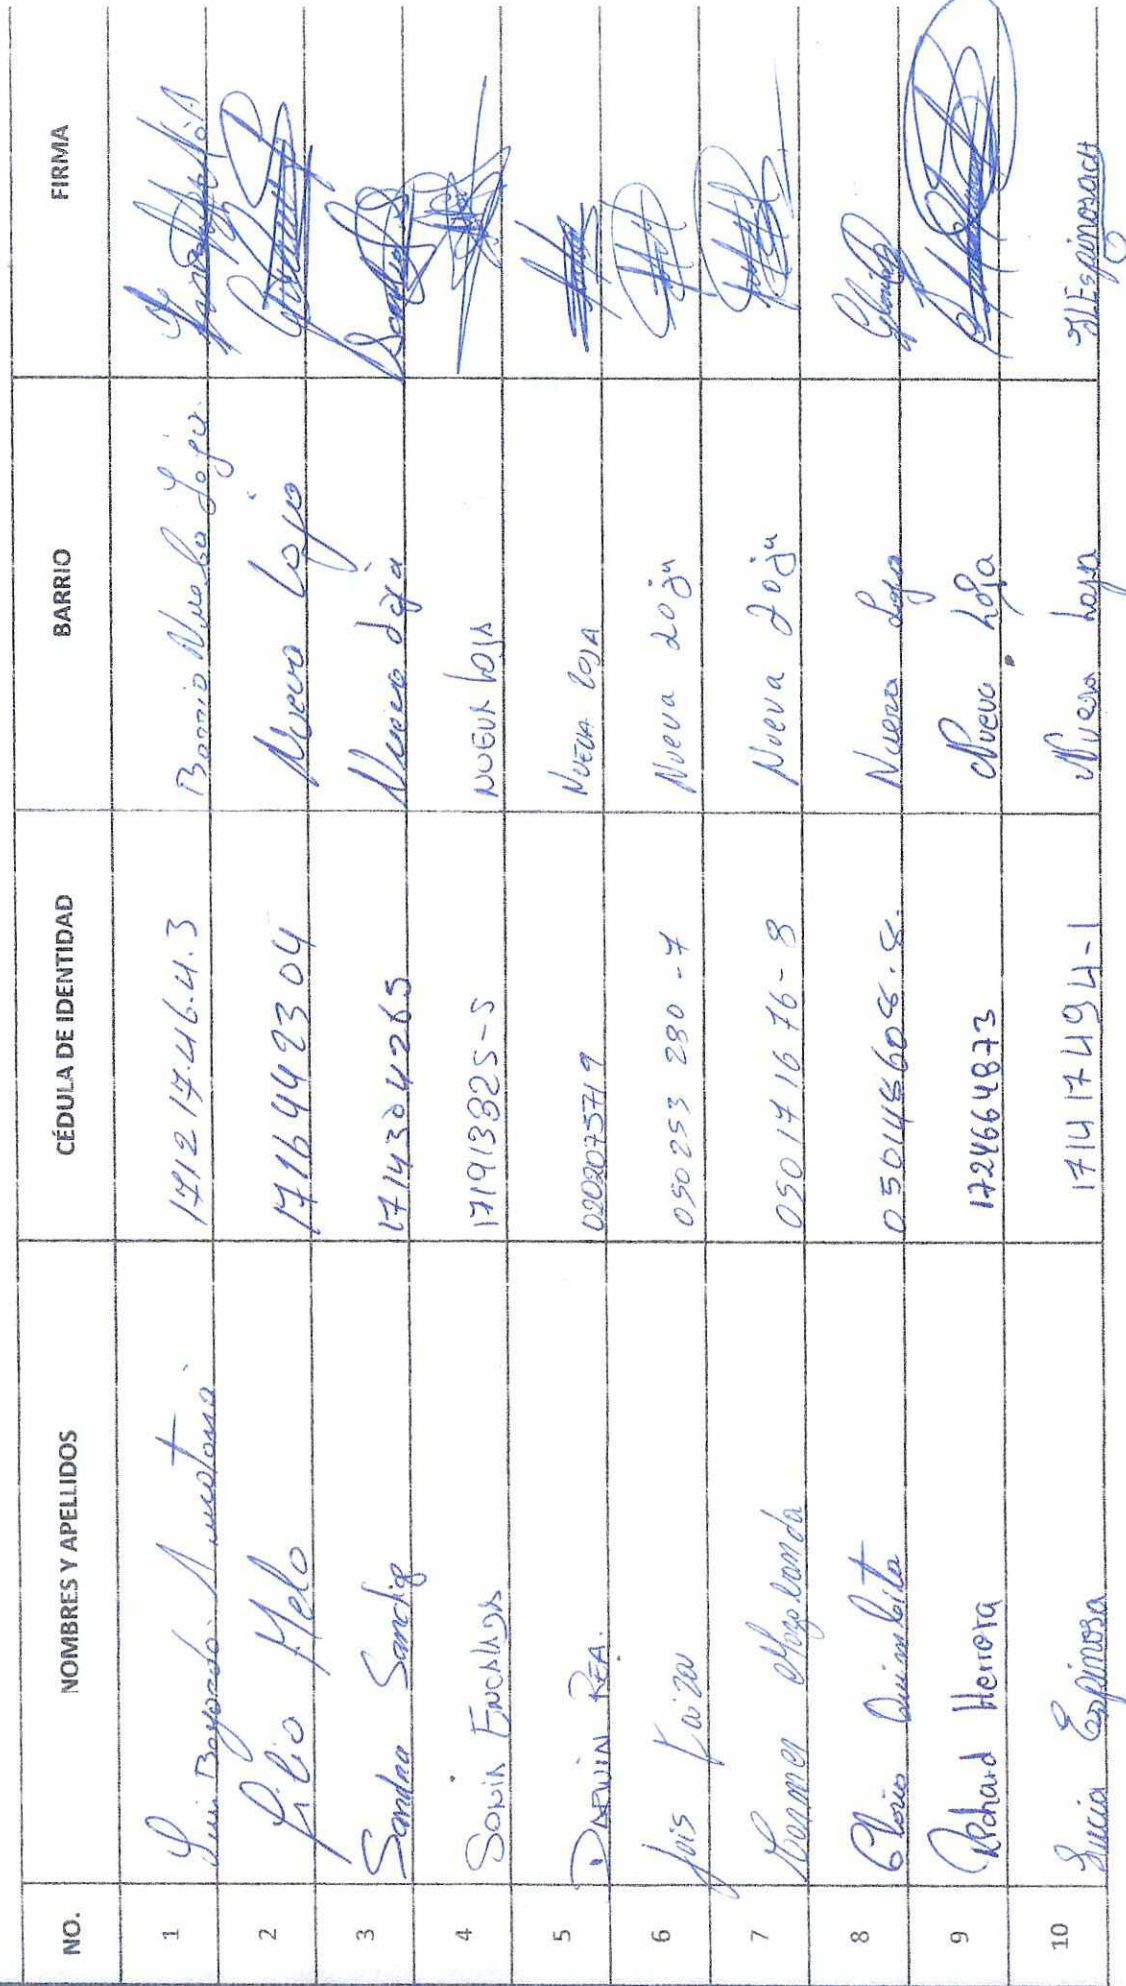 NO. NOMBRES Y APELLIDOS CÉDULA DE IDENTIDAD BARRIO FIRMA
1 Luis Bayardo 171217.46.4.3 Barrio Nueba Loja.
2 Libio Melo 1716449304 Nueva Loja
3 Sandra Sanchez 1714304265 Nueva Loja
4 SONIA ENCALADA 17191382S-S NUEVA LOJA
5 DARWIN REA. 0202075719 NUEVA LOJA
6 Luis 050 253 280 -7 Nueva Loja
7 Carmen 050 17 16 76 - 8 Nueva Loja
8 Gloria Quimbita 050148608.8. Nueva Loja Gloria
9 Richard Herrera 1724664873 Nueva Loja
10 Lucia Espinosa 171417494-1 Nueva Loja